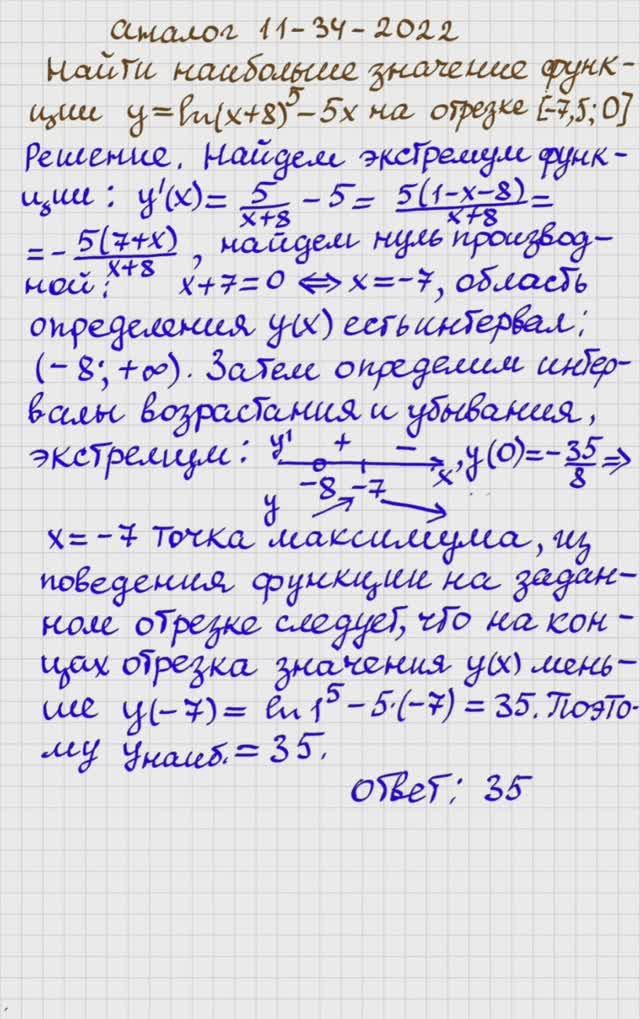 Аналог 11-34-2022
Найти наибольше значение функ-
ции y=ln(x+8)⁵-5x на отрезке [-7,5; 0]
Решение. Найдем экстремум функ-
ции: y'(x)= 5/(x+8) - 5 = 5(1-x-8)/(x+8) =
= - 5(7+x)/(x+8), найдем нуль производ-
ной: x+7=0 ⇔ x=-7, область
определения y(x) есть интервал:
(-8; +∞). Затем определим интер-
валы возрастания и убывания,
экстремум: y' + - x, y(0)=-35/8 ⇒
-8 -7
y
x=-7 точка максимума, из
поведения функции на задан-
ном отрезке следует, что на кон-
цах отрезка значения y(x) мень-
ше y(-7) = ln 1⁵ - 5·(-7) = 35. Поэто-
му yнаиб. = 35.
Ответ: 35